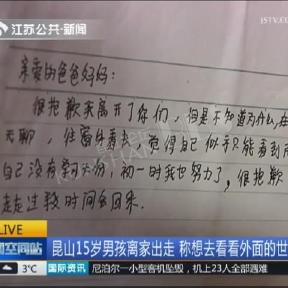 江苏公共·新闻
JSTV.COM
亲爱的爸爸妈妈:
很抱歉我离开了你们,但是不知道为什么,在
无聊,往窗外看去,觉得自己似乎只能看到
自己没有努力,初一时我也努力了,很抱歉
走走过段时间会回来.
LIVE
昆山15岁男孩离家出走 称想去看看外面的世
3℃ 国际资讯 尼泊尔一小型客机坠毁,机上23人全部遇难